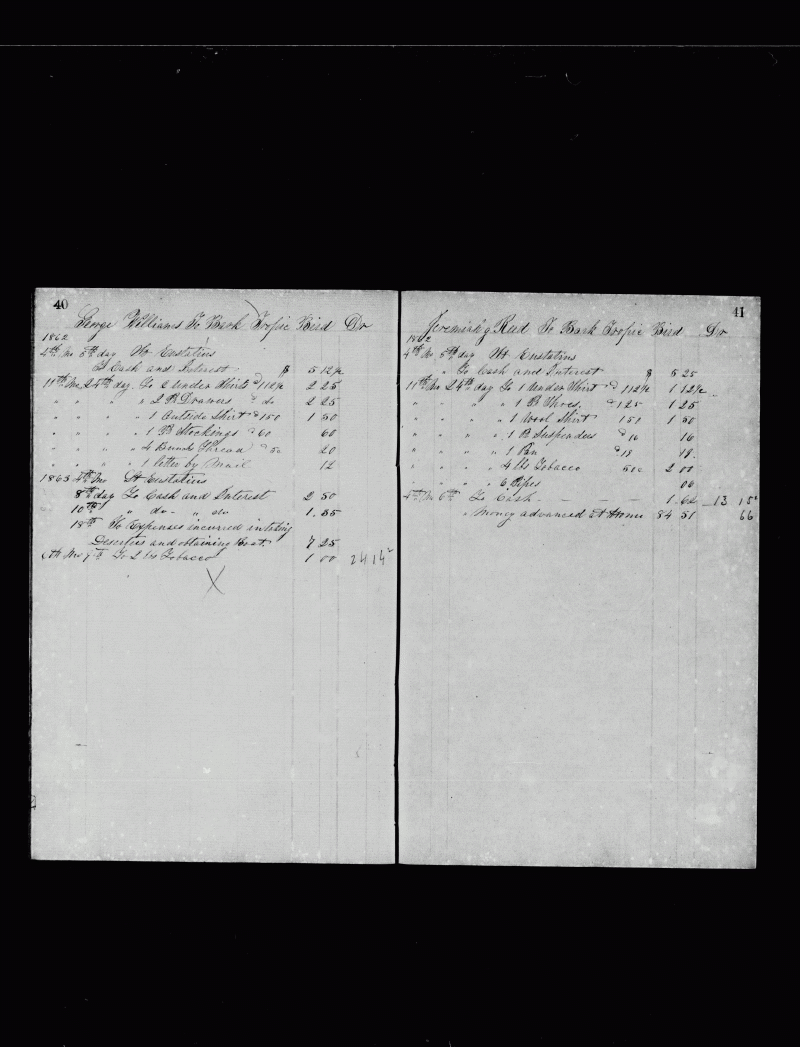 40
George Williams To Bark Tropic Bird Dr
1862
4th Mo 5th day St Eustatius
To Cash and Interest $ 5 12½
11th Mo 24th day To 2 under Shirts @ 112½ 2 25
" " " " 2 Pr Drawers " do 2 25
" " " " 1 Outside Shirt @ 150 1 50
" " " " 1 Pr Stockings @ 60 60
" " " " 4 Bunch Thread @ 5c 20
" " " " 1 letter by Mail 12
1863 4th Mo St Eustatius
8th day To Cash and Interest 2 50
10th " do - " do 1.35
18th To Expenses incured in
Deserties and obtaining Boat. 7 25
Mo 7th To 2 lbs Tobacco 1 00 24 14
X
41
Jeremiah Reed To Bark Tropic Bird Dr
1862
4th Mo 5th day St Eustatius
" To Cash and Interest $ 5 25
11th Mo 24th day To 1 Under Shirt @ 112½ 1 12½
" " " " 1 Pr Shoes, @ 125 1 25
" " " " 1 Wool Shirt 150 1 50
" " " " 1 Pr Suspenders @ 16 16
" " " " 1 Pan @ 18 18.
" " " " 4 lbs Tobacco 50c 2 00
" " " " 6 Pipes 06
4th Mo 6th To Cash - - - - 1.62 13 15
" Money advanced at Home 84 51 66